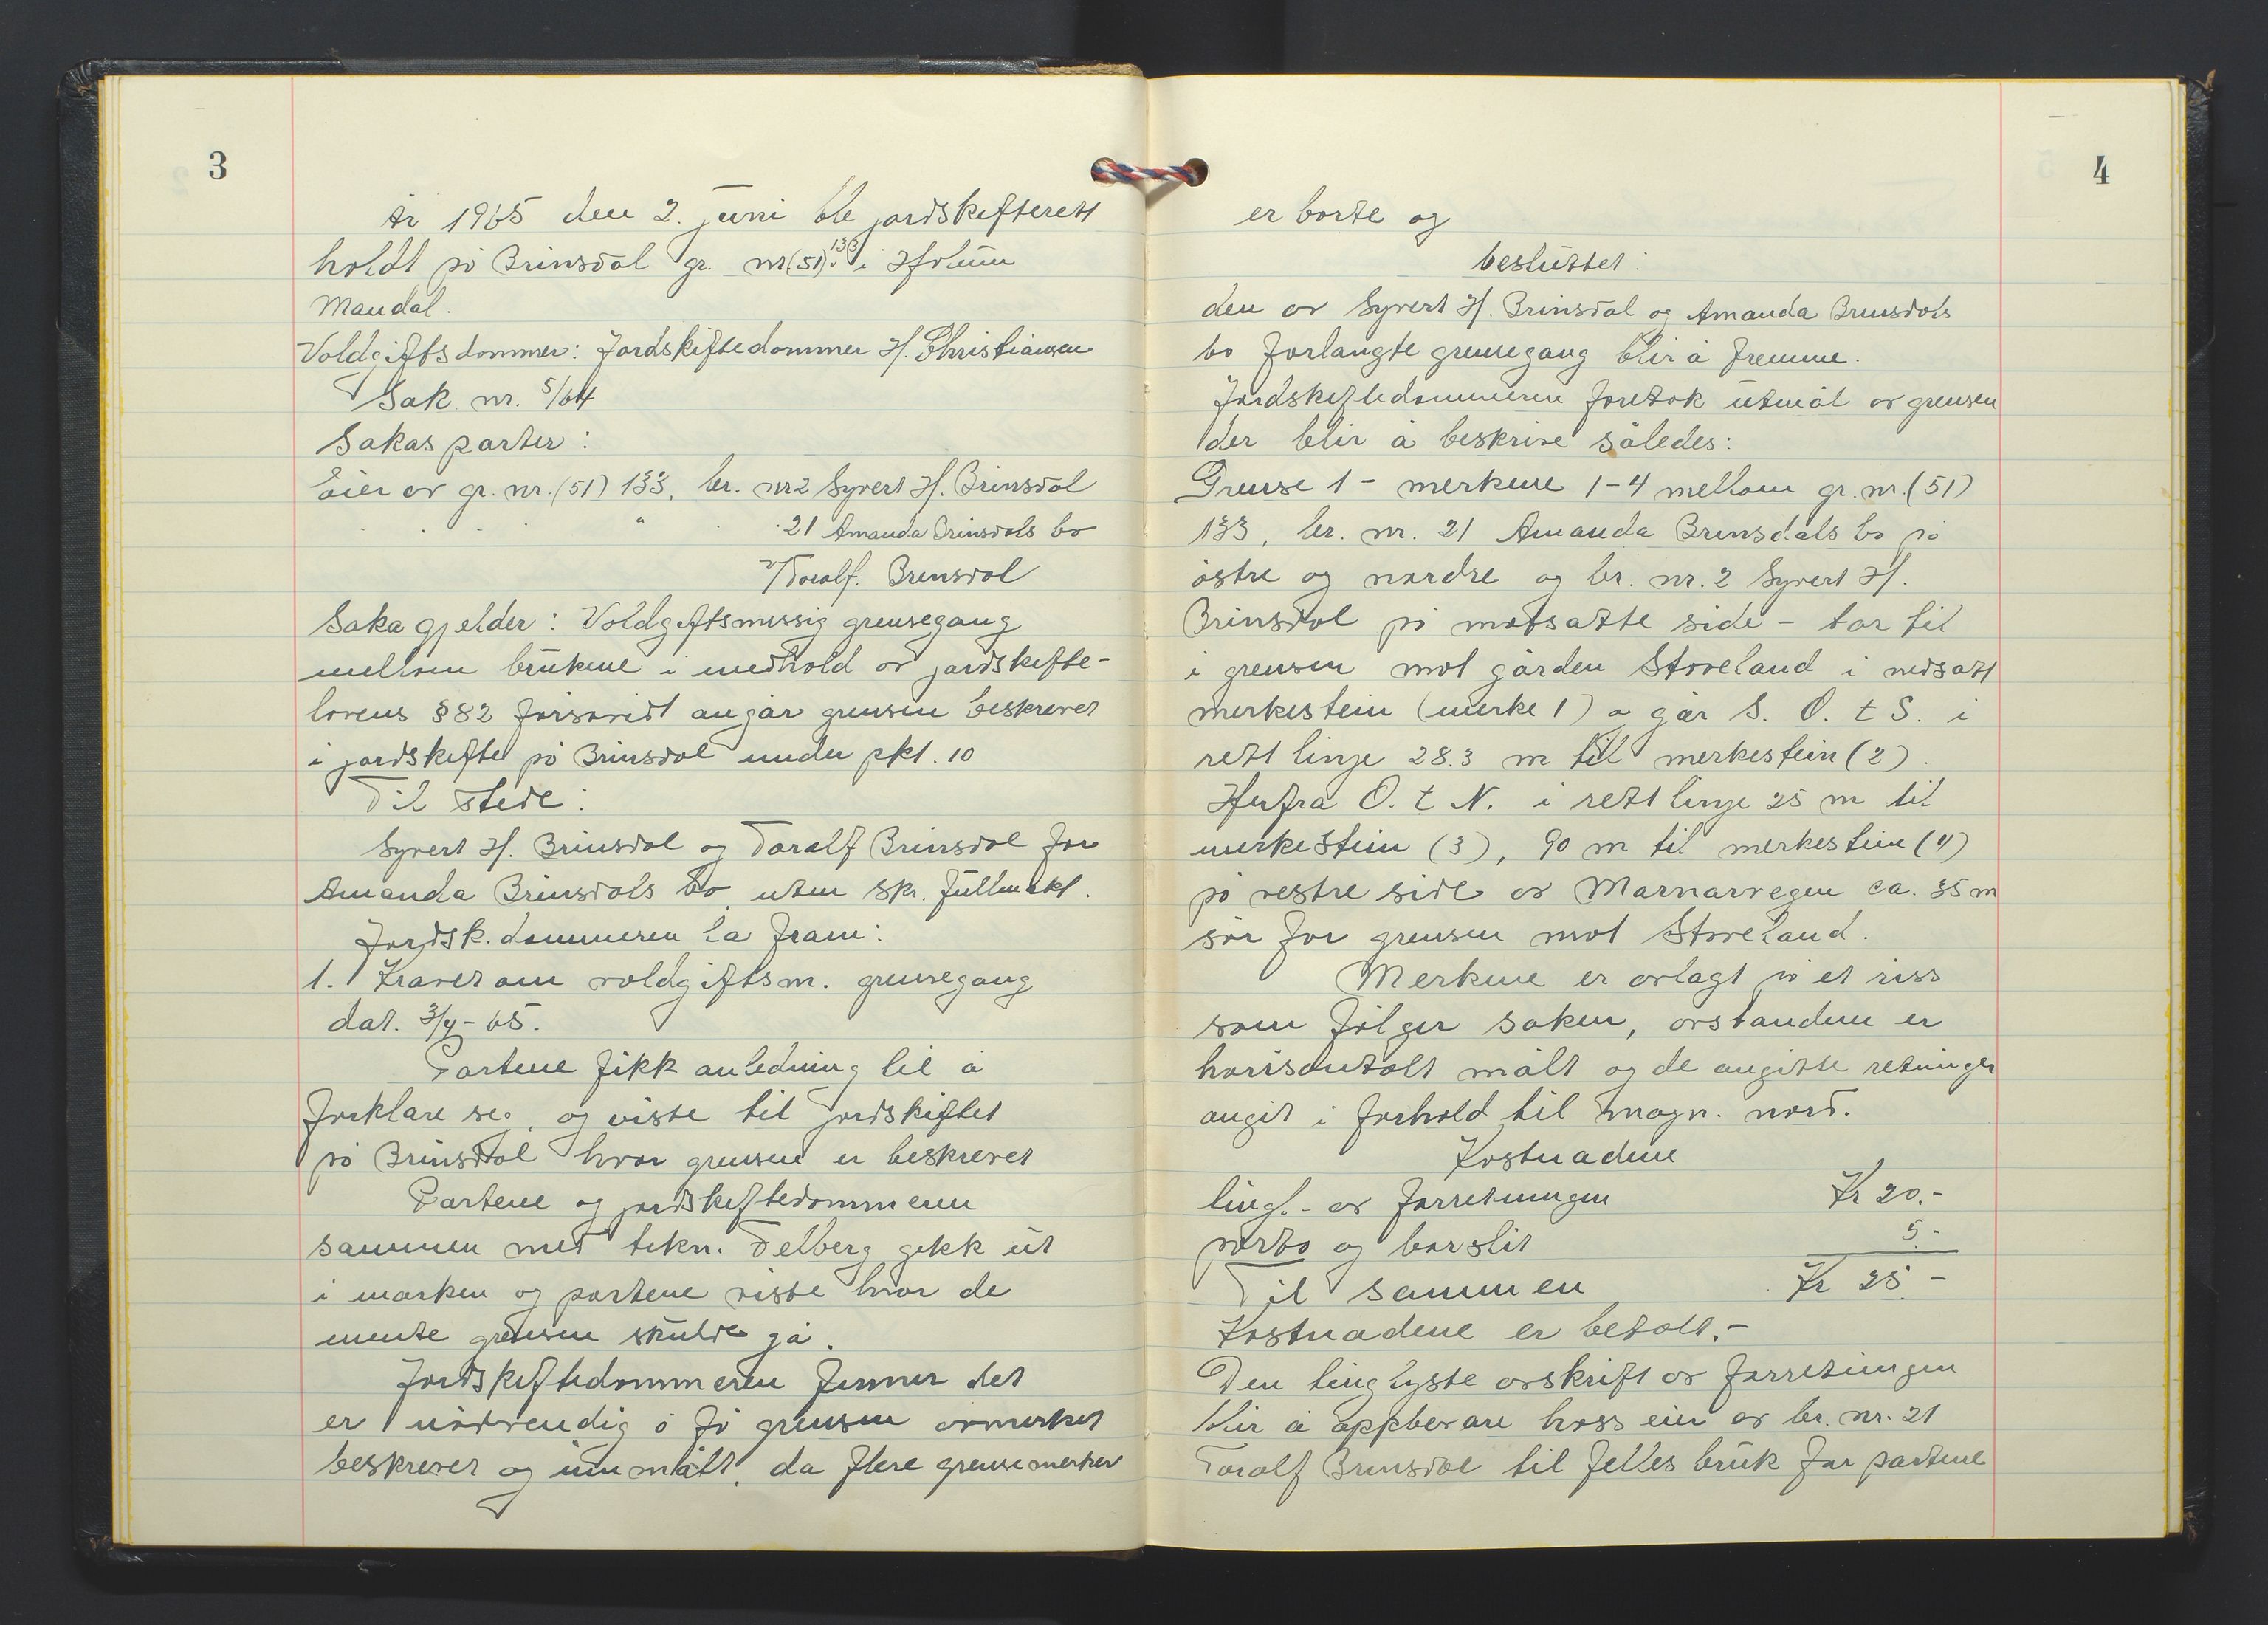 3
År 1965 den 2. juni ble jordskifterett
holdt på Brinsdal gr. nr (51) 133 i Holum
Mandal.
Voldgiftsdommer: Jordskiftedommer H. Christiansen
Sak nr. 5/64
Sakas parter:
Eier av gr. nr. (51) 133, br. nr 2 Syvert H. Brinsdal
" 21 Amanda Brinsdals bo
v/Toralf. Brinsdal
Saka gjelder: Voldgiftsmessig grensegang
mellom brukene i medhold av jordskifte-
lovens § 82 forsåvidt angår grensen beskrevet
i jordskifte på Brinsdal under pkt. 10
Til stede:
Syvert H. Brinsdal og Toralf Brinsdal for
Amanda Brinsdals bo uten skr. fullmakt.
Jordsk.dommeren la fram:
1. Kravet om voldgiftsm. grensegang
dat. 3/4-65.
Partene fikk anledning til å
forklare seg, og viste til jordskiftet
på Brinsdal hvor grensene er beskrevet
Partene og jordskiftedommeren
sammen med tekn. Felberg gikk ut
i marken og partene viste hvor de
mente grensen skulde gå.
Jordskiftedommeren finner det
er nødvendig å få grensen avmerket
beskrevet og innmålt, da flere grensemerker
4
er borte og
besluttet:
den av Syvert H. Brinsdal og Amanda Brinsdals
bo forlangte grensegang blir å fremme.
Jordskiftedommeren foretok utmål av grensen
der blir å beskrive således:
Grense 1 - merkene 1-4 mellom gr. nr. (51)
133, br. nr. 21 Amanda Brinsdals bo på
østre og nordre og br. nr. 2 Syvert H.
Brinsdal på motsatte side - tar til
i grensen mot gården Støveland i nedsatt
merkestein (merke 1) og går S. O. t S. i
rett linje 28.3 m til merkestein (2).
Herfra O. t N. i rett linje 25 m til
merkestein (3), 90 m til merkestein (4)
på vestre side av Marnarvegen ca. 35 m
sør for grensen mot Støveland.
Merkene er avlagt på et riss
som følger saken, avstandene er
horisontalt målt og de angitte retninger
angit i forhold til magn. nord.
Kostnadene
tingl. - av forretningen Kr 20.-
porto og børslit 5.-
Til sammen Kr 25.-
Kostnadene er betalt.-
Den tinglyste avskrift av forretningen
blir å oppbevare hoss eier av br. nr. 21
Toralf Brinsdal til felles bruk for partene